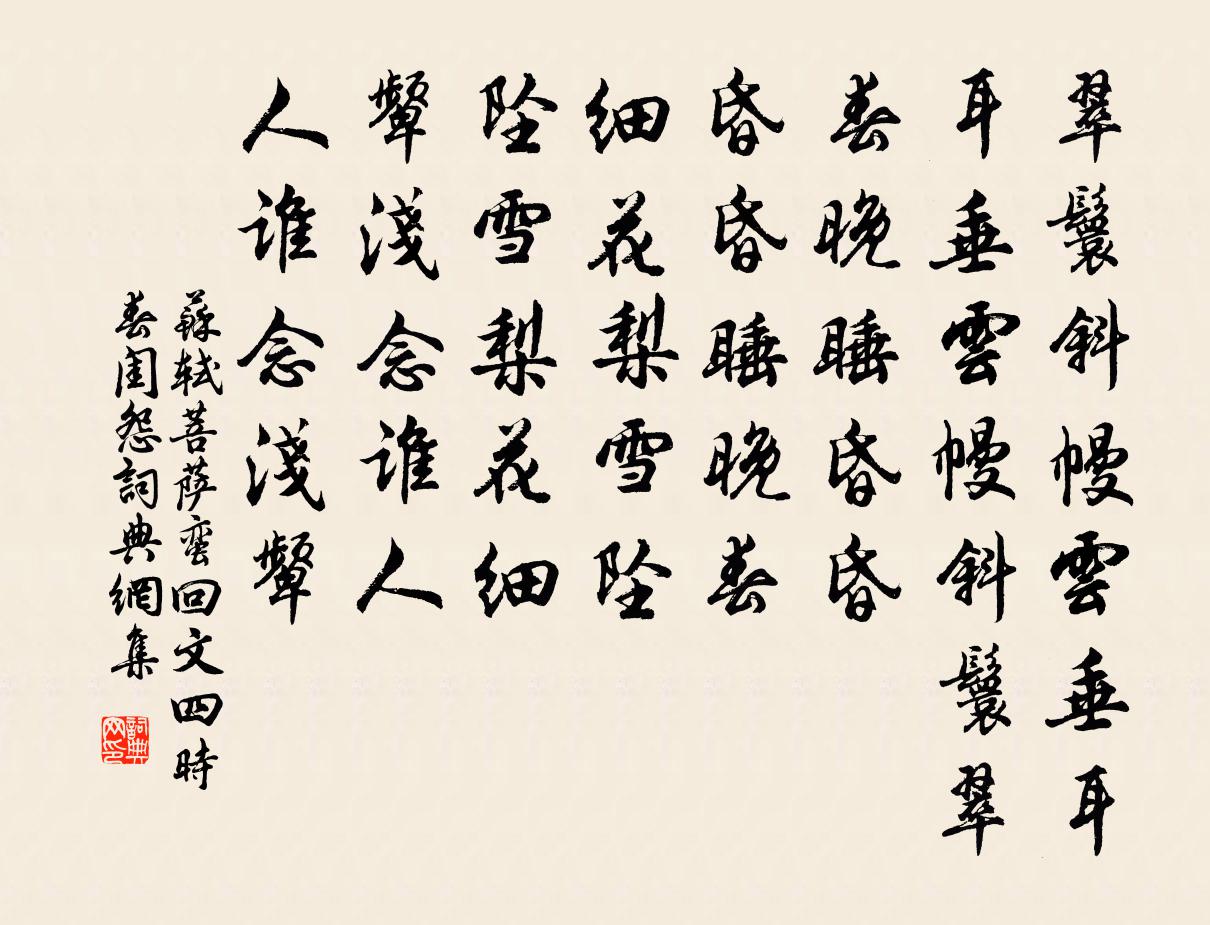 翠鬟斜幔雲垂耳
耳垂雲幔斜鬟翠
春晚睡昏昏
昏昏睡晚春
細花梨雪墜
墜雪梨花細
顰淺念誰人
人誰念淺顰
蘇軾菩薩蠻回文四時
春閨怨詞典網集
詞典
网印